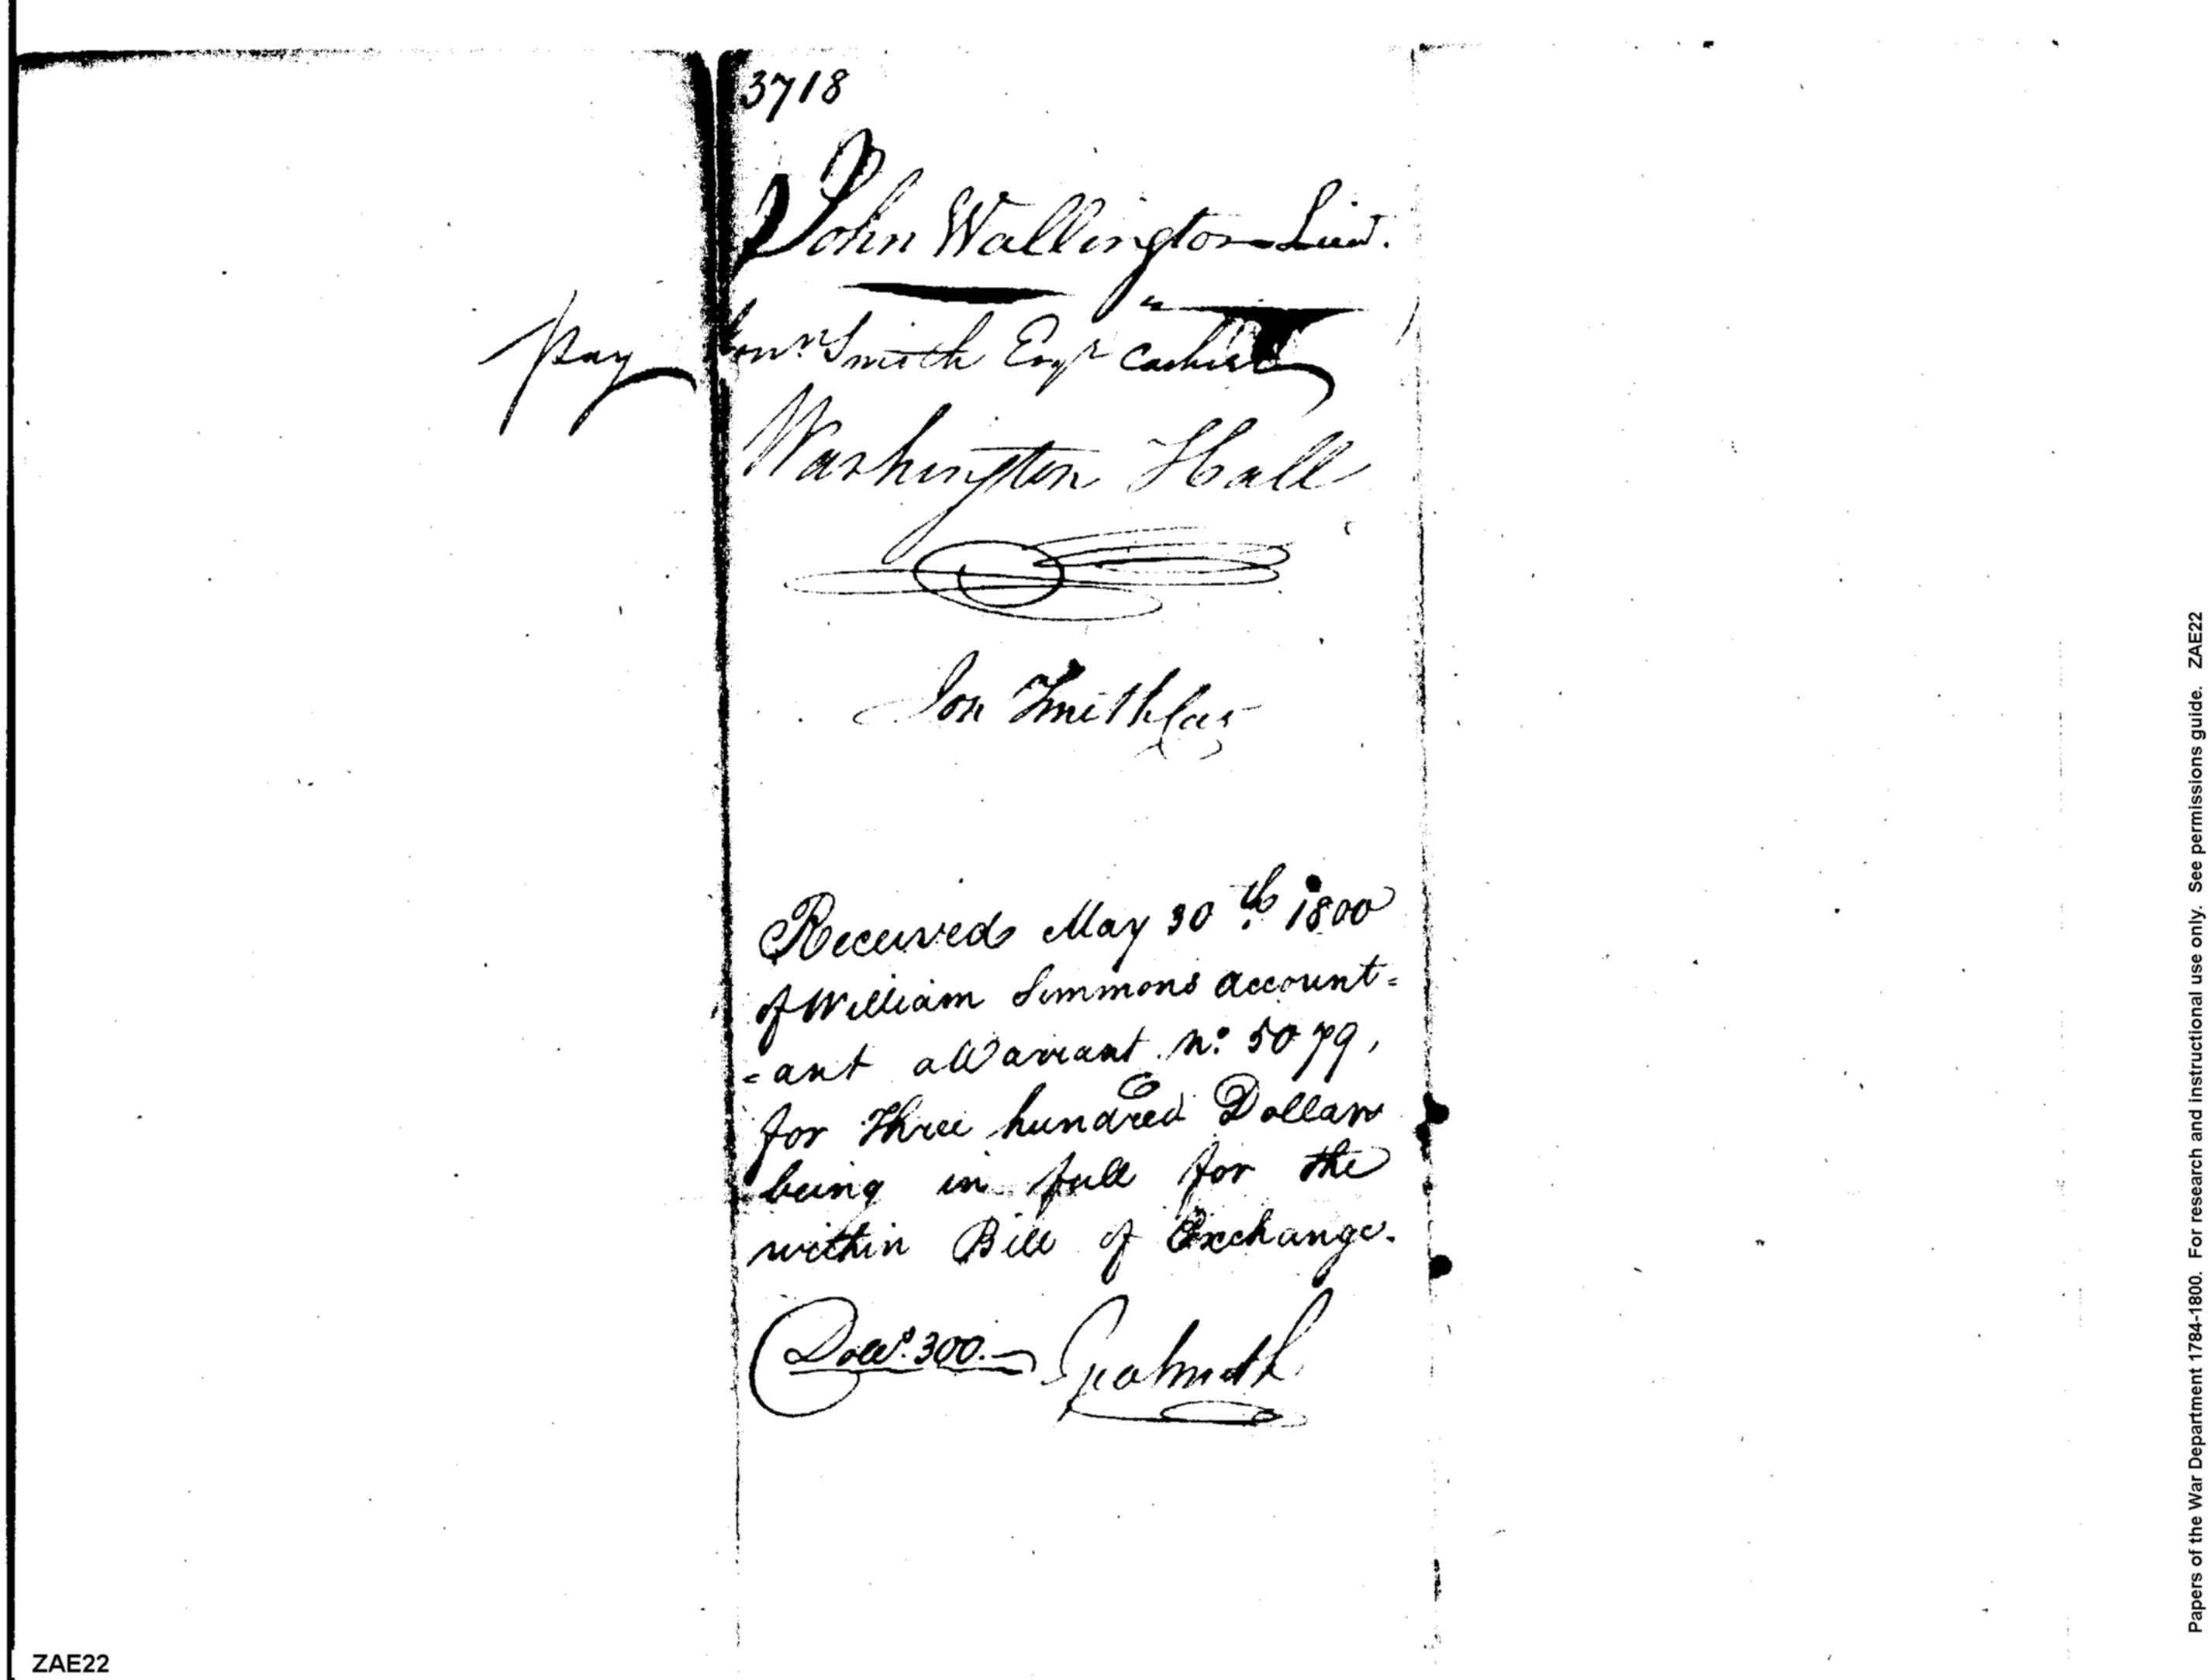 3718
John Wallington Lieut.
Pay Jonn. Smith Esqr Cashier
Washington Hall
Jon Smith Cas
Received May 30th 1800
of William Simmons account=
=ant a Warrant No. 5079,
for Three hundred Dollars
being in full for the
within Bill of Exchange.
Dolls. 300.
ZAE22
Papers of the War Department 1784-1800. For research and instructional use only. See permissions guide. ZAE22